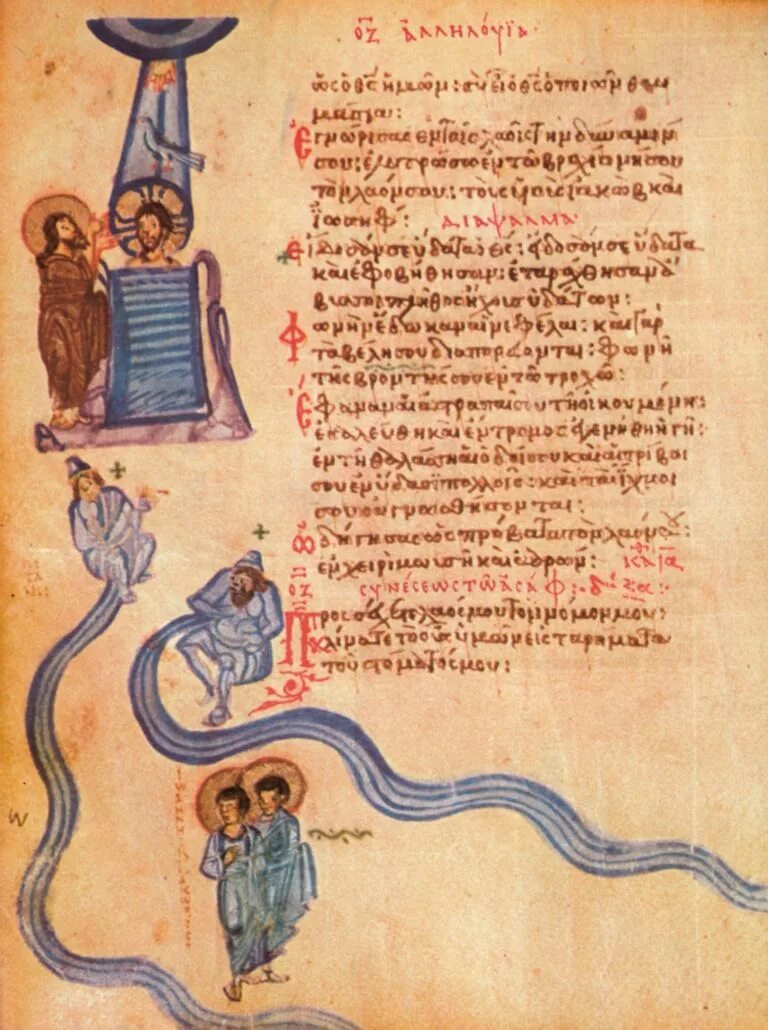 ΟΖ ἀλληλούϊα
ὡς ὁ θς ἡμῶν: σὺ εἶ ὁ θς ὁ ποιῶν θαυ
μάσια:
Ἐγνώρισας ἐν τοῖς λαοῖς τὴν δύναμίν
σου: ἐλυτρώσω ἐν τῶ βραχίονί σου
τὸν λαόν σου: τοὺς υἱοὺς ἰακὼβ καὶ
ἰωσήφ: διάψαλμα
Εἴδοσάν σε ὕδατα ὁ θς: εἴδοσάν σε ὕδατα
καὶ ἐφοβήθησαν: ἐταράχθησαν ἄ
βυσσοι πλῆθος ἤχους ὑδάτων:
Φωνὴν ἔδωκαν αἱ νεφέλαι: καὶ γὰρ
τὰ βέλη σου διαπορεύονται: φωνὴ
τῆς βροντῆς σου ἐν τῶ τροχῶ:
Ἔφαναν αἱ ἀστραπαί σου τῆ οἰκουμένη:
ἐσαλεύθη καὶ ἔντρομος ἐγενήθη ἡ γῆ:
ἐν τῆ θαλάσση ἡ ὁδός σου καὶ αἱ τρίβοι
σου ἐν ὕδασι πολλοῖς: καὶ τὰ ἴχνη
σου οὐ γνωσθήσονται:
Ὡδήγησας ὡς πρόβατα τὸν λαόν σου
ἐν χειρὶ μωυσῆ καὶ ἀαρών:
ΟΖ συνέσεως τῶ ἀσάφ:
Προσέχετε λαός μου τὸν νόμον μου:
κλίνατε τὸ οὖς ὑμῶν εἰς τὰ ῥήματα
τοῦ στόματός μου: